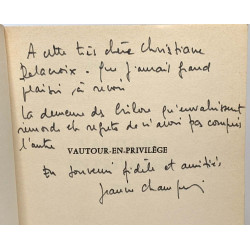 A cette très chère Christiane
Delacroix. que j'aurais grand
plaisir à revoir
la demeure des qu'envahissent
remords et regrets de n'avoir pas compris
l'autre
VAUTOUR-EN-PRIVILÈGE
En souvenir fidèle et amitiés,